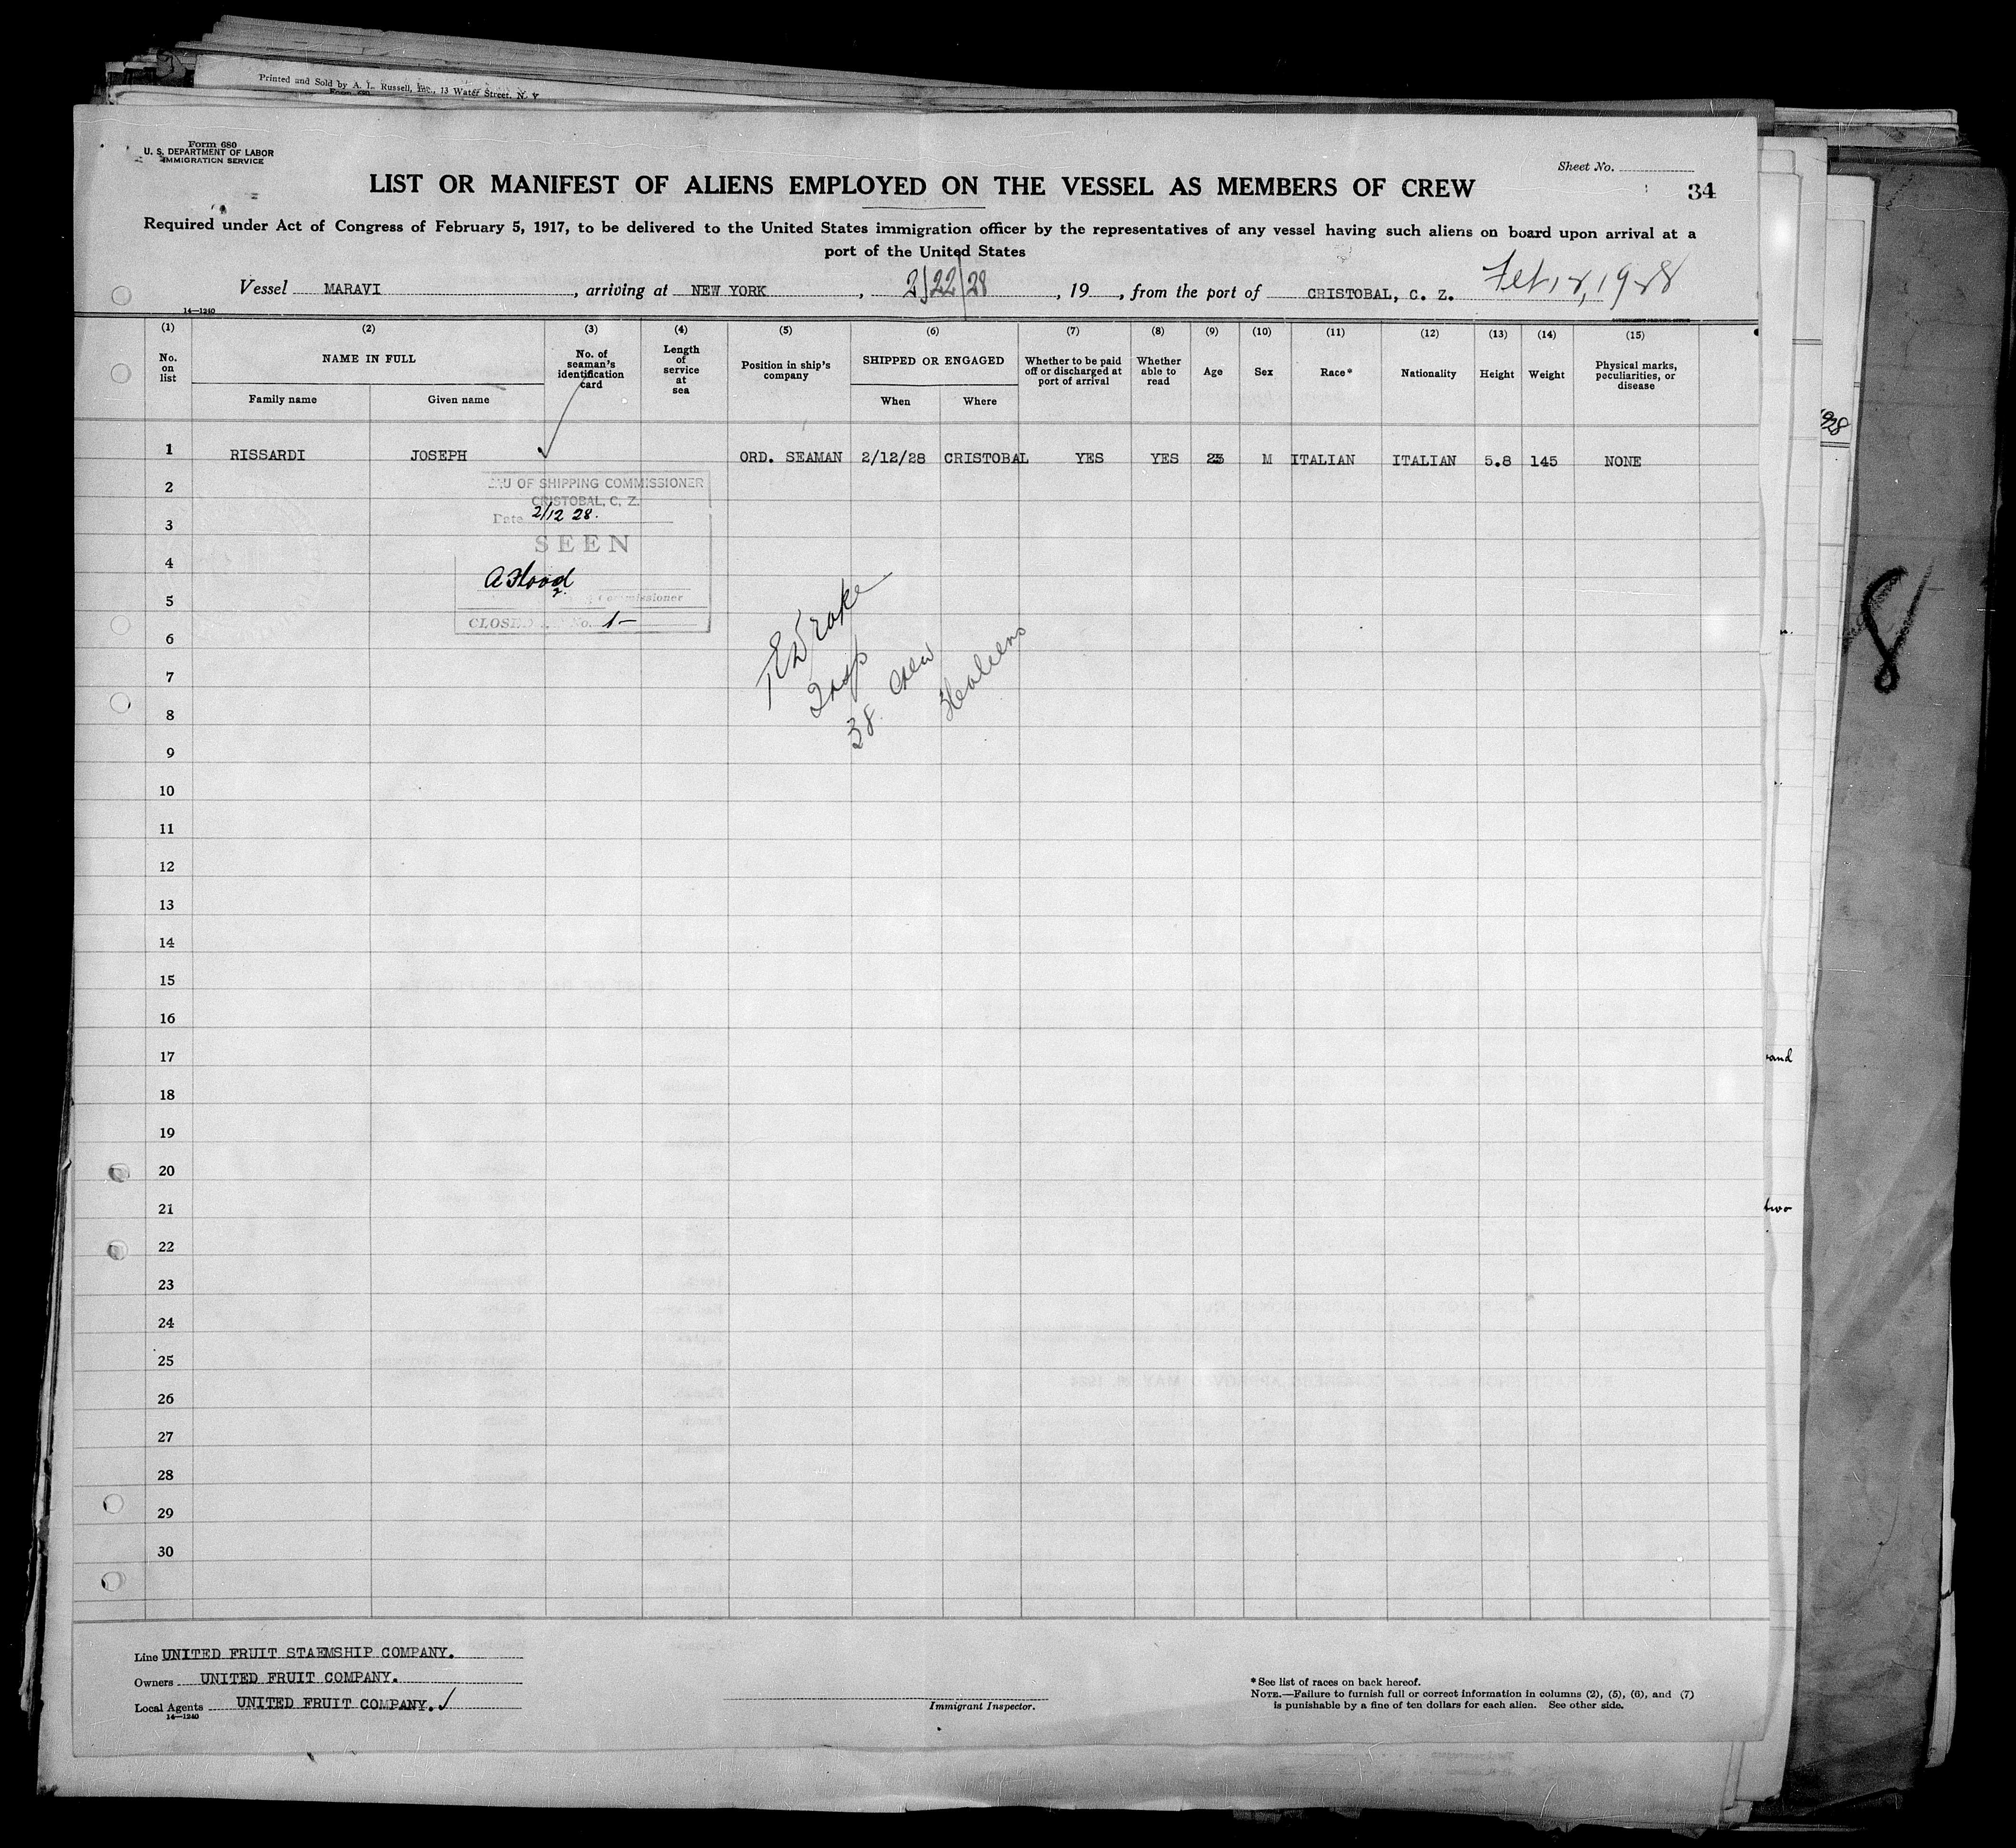 Printed and Sold by A. L. Russell, Inc., 13 Water Street, N. Y
Form 680
Form 680
U. S. DEPARTMENT OF LABOR
IMMIGRATION SERVICE
Sheet No.
34
LIST OR MANIFEST OF ALIENS EMPLOYED ON THE VESSEL AS MEMBERS OF CREW
Required under Act of Congress of February 5, 1917, to be delivered to the United States immigration officer by the representatives of any vessel having such aliens on board upon arrival at a
port of the United States
Vessel MARAVI, arriving at NEW YORK, 2/22/28, 19, from the port of CRISTOBAL, C. Z. Feb 12, 1928
14—1240
(1) (2) (3) (4) (5) (6) (7) (8) (9) (10) (11) (12) (13) (14) (15)
No. on list NAME IN FULL No. of seaman's identification card Length of service at sea Position in ship's company SHIPPED OR ENGAGED Whether to be paid off or discharged at port of arrival Whether able to read Age Sex Race* Nationality Height Weight Physical marks, peculiarities, or disease
Family name Given name When Where
1 RISSARDI JOSEPH ORD. SEAMAN 2/12/28 CRISTOBAL YES YES M ITALIAN ITALIAN 5.8 145 NONE
2
OF SHIPPING COMMISSIONER
CRISTOBAL, C. Z.
Date 2/12 28.
3
SEEN
4
A Flood
5
Commissioner
CLOSED No. 1-
6
7
Insp
38 crew
8
9
10
11
12
13
14
15
16
17
and
18
19
20
21
two
22
23
24
25
26
27
28
29
30
8
Line UNITED FRUIT STAEMSHIP COMPANY.
Owners UNITED FRUIT COMPANY.
Local Agents UNITED FRUIT COMPANY. ✓
14—1240
Immigrant Inspector.
*See list of races on back hereof.
NOTE.—Failure to furnish full or correct information in columns (2), (5), (6), and (7)
is punishable by a fine of ten dollars for each alien. See other side.